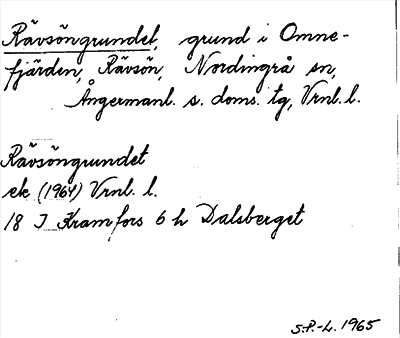 Rävsöngrundet, grund i Omne-
fjärden, Rävsön, Nordingrå sn,
Ångermanl. s. doms. tg, Vrnl. l.
Rävsöngrundet
ek (1964) Vrnl. l.
18 I Kramfors 6 h Dalsberget
S.P.-L. 1965